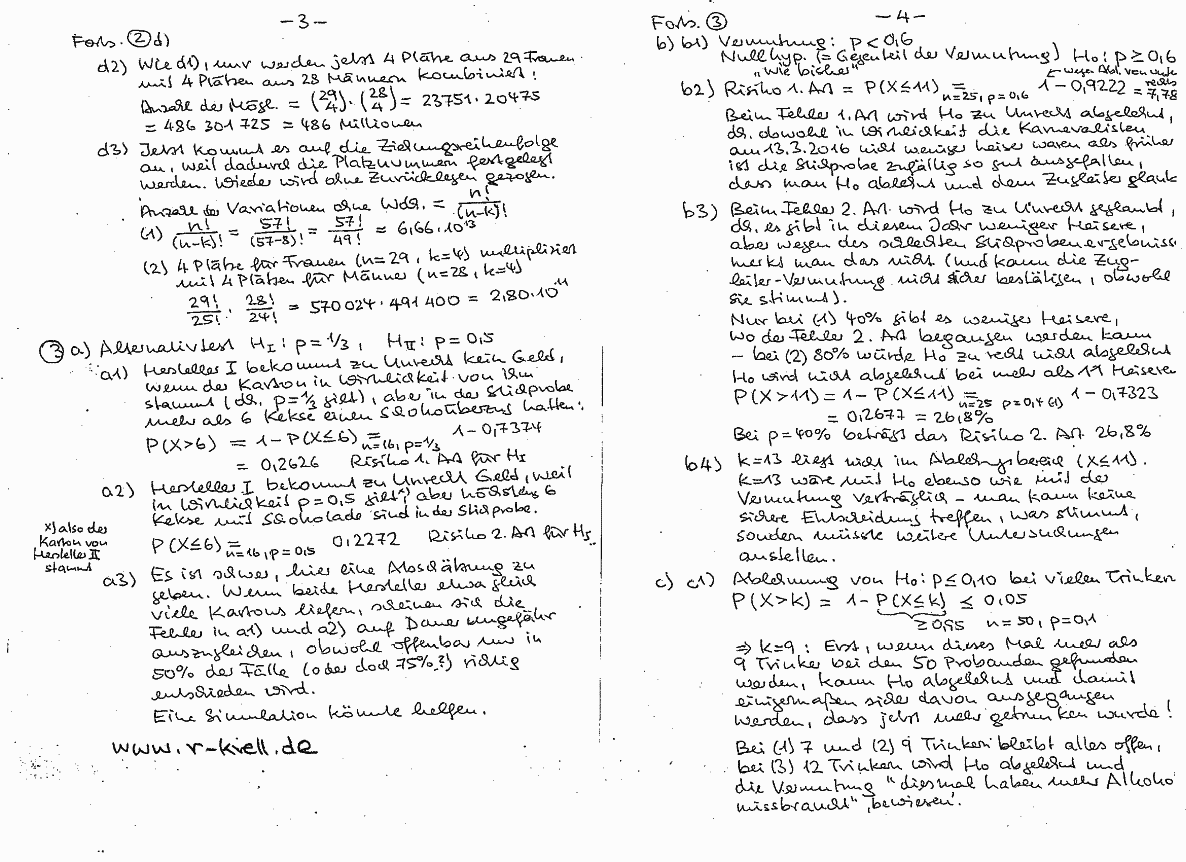 -3-
Forts. ② d)
d2) Wie d1), nur werden jetzt 4 Plätze aus 29 Frauen
mit 4 Plätzen aus 28 Männern kombiniert:
Anzahl der Mögl. = (29 4) · (28 4) = 23751 · 20475
= 486 301 725 = 486 Millionen
d3) Jetzt kommt es auf die Ziehungsreihenfolge
an, weil dadurch die Platznummern festgelegt
werden. Wieder wird ohne Zurücklegen gezogen.
Anzahl der Variationen ohne Wdh. = n!/(n-k)!
(1) n!/(n-k)! = 57!/(57-8)! = 57!/49! = 6,66·10¹³
(2) 4 Plätze für Frauen (n=29, k=4) multipliziert
mit 4 Plätzen für Männer (n=28, k=4)
29!/25! · 28!/24! = 570 024 · 491 400 = 2,80·10¹¹
③ a) Alternativtest H_I: p=1/3, H_II: p=0,5
a1) Hersteller I bekommt zu Unrecht kein Geld,
wenn der Karton in Wirklichkeit von ihm
stammt (dh. p=1/3 gilt), aber in der Stichprobe
mehr als 6 Kekse einen Schokoüberzug hatten:
P(X>6) = 1-P(X≤6) = n=16, p=1/3 1-0,7374
= 0,2626 Risiko 1. Art für H_I
a2) Hersteller I bekommt zu Unrecht Geld, weil
in Wirklichkeit p=0,5 gilt x) aber höchstens 6
Kekse mit Schokolade sind in der Stichprobe.
x) also der
Karton von
Hersteller II
stammt
P(X≤6) = n=16, p=0,5 0,2272 Risiko 2. Art für H_I
a3) Es ist schwer, hier eine Abschätzung zu
geben. Wenn beide Hersteller etwa gleich
viele Kartons liefern, scheinen sich die
Fehler in a1) und a2) auf Dauer ungefähr
auszugleichen, obwohl offenbar nur in
50% der Fälle (oder doch 75%?) richtig
entschieden wird.
Eine Simulation könnte helfen.
www.r-krell.de
-4-
Forts. ③
b) b1) Vermutung: p<0,6
Nullhyp. (= Gegenteil der Vermutung) H₀: p≥0,6
"wie bisher"
b2) Risiko 1. Art = P(X≤11) = n=25, p=0,6 1-0,9222 = 7,78
Beim Fehler 1. Art wird H₀ zu Unrecht abgelehnt,
dh. obwohl in Wirklichkeit die Karnevalisten
am 13.3.2016 nicht weniger heiser waren als früher
ist die Stichprobe zufällig so gut ausgefallen,
dass man H₀ ablehnt und dem Zugleiter glaubt
b3) Beim Fehler 2. Art wird H₀ zu Unrecht geglaubt,
dh. es gibt in diesem Jahr weniger Heisere,
aber wegen des schlechten Stichprobenergebnisses
merkt man das nicht (und kann die Zug-
leiter-Vermutung nicht sicher bestätigen, obwohl
sie stimmt).
Nur bei (1) 40% gibt es weniger Heisere,
wo der Fehler 2. Art begangen werden kann
- bei (2) 80% würde H₀ zu recht nicht abgelehnt
H₀ wird nicht abgelehnt bei mehr als 11 Heiseren
P(X>11) = 1-P(X≤11) = n=25 p=0,4 (1) 1-0,7323
= 0,2677 = 26,8%
Bei p=40% beträgt das Risiko 2. Art 26,8%
b4) k=13 liegt nicht im Ablehnungsbereich (X≤11).
k=13 wäre mit H₀ ebenso wie mit der
Vermutung verträglich - man kann keine
sichere Entscheidung treffen, was stimmt,
sondern müsste weitere Untersuchungen
anstellen.
c) c1) Ablehnung von H₀: p≤0,10 bei vielen Trinkern
P(X>k) = 1-P(X≤k) ≤ 0,05
≥0,95 n=50, p=0,1
⇒ k=9: Erst, wenn dieses Mal mehr als
9 Trinker bei den 50 Probanden gefunden
werden, kann H₀ abgelehnt und damit
einigermaßen sicher davon ausgegangen
werden, dass jetzt mehr getrunken wurde!
Bei (1) 7 und (2) 9 Trinkern bleibt alles offen,
bei (3) 12 Trinkern wird H₀ abgelehnt und
die Vermutung "diesmal haben mehr Alkohol
missbraucht" 'bewiesen'.